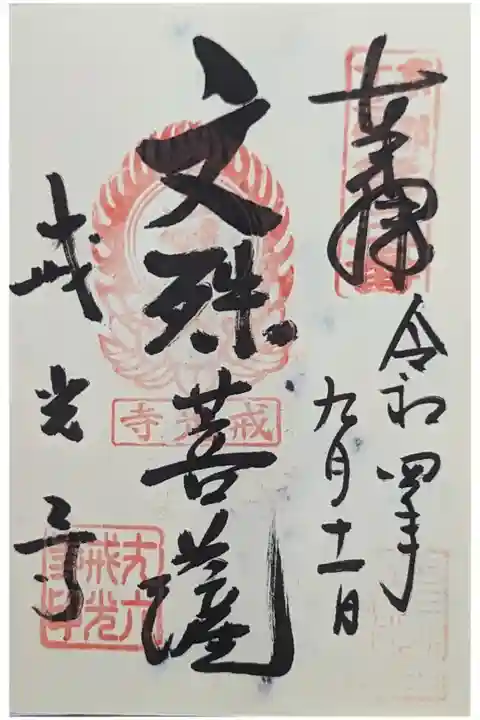 奉拝
令和四年
九月十一日
文殊菩薩
戒光寺
戒光寺
丈六戒光寺印